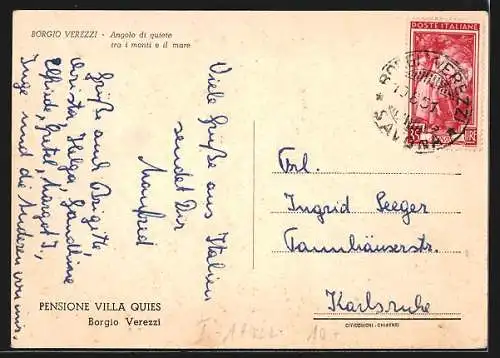 BORGIO VEREZZI - Angolo di quiete
tra i monti e il mare
Viele Grüße aus Italien
sendet Dir
Manfred
Grüße auch Brigitte,
Christa, Helga, Sandline
Elfriede, Gretel, Margot J.,
Inge und die Anderen von mir.
PENSIONE VILLA QUIES
Borgio Verezzi
POSTE ITALIANE
BORGIO VEREZZI
SAVONA
35 LIRE
Frl.
Ingrid Seeger
Tannhäuserstr.
Karlsruhe
CIVICCHIONI - CHIAVARI